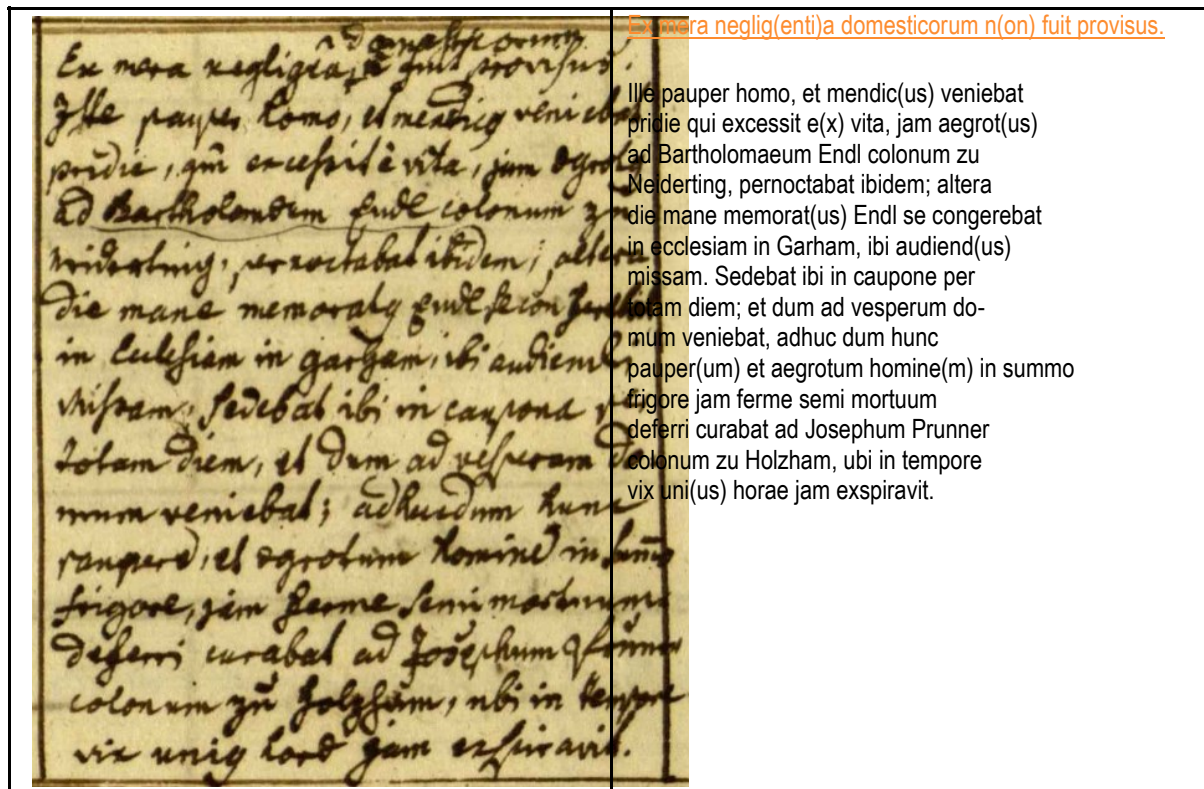 domesticorum
Ex mera negligẽa, n̄ fuit provisus.
Ille pauper homo, et mendicꝰ veniebat
pridie, qui excessit è vita, jam ægrotꝰ
ad Bartholomæum Endl colonum zu
Neiderting, pernoctabat ibidem; altera
die mane memoratꝰ Endl se congerebat
in Ecclesiam in Garham, ibi audiend
Missam. Sedebat ibi in caupona per
totam diem, et dum ad vesperam do
mum veniebat; adhucdum hunc
pauperẽ, et ægrotum hominẽ in sum̄o
frigore, jam ferme semi mortuum
deferri curabat ad Josephum Prunner
colonum zu Holzham, ubi in tempore
vix uniꝰ horæ jam exspiravit.
Ex mera neglig(enti)a domesticorum n(on) fuit provisus.
Ille pauper homo, et mendic(us) veniebat
pridie qui excessit e(x) vita, jam aegrot(us)
ad Bartholomaeum Endl colonum zu
Neiderting, pernoctabat ibidem; altera
die mane memorat(us) Endl se congerebat
in ecclesiam in Garham, ibi audiend(us)
missam. Sedebat ibi in caupone per
totam diem; et dum ad vesperum do-
mum veniebat, adhuc dum hunc
pauper(um) et aegrotum homine(m) in summo
frigore jam ferme semi mortuum
deferri curabat ad Josephum Prunner
colonum zu Holzham, ubi in tempore
vix uni(us) horae jam exspiravit.